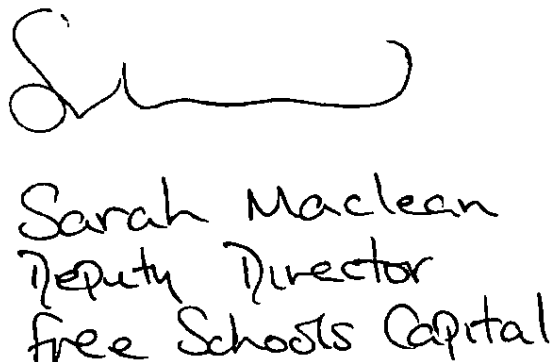 Sarah Maclean
Deputy Director
Free Schools Capital